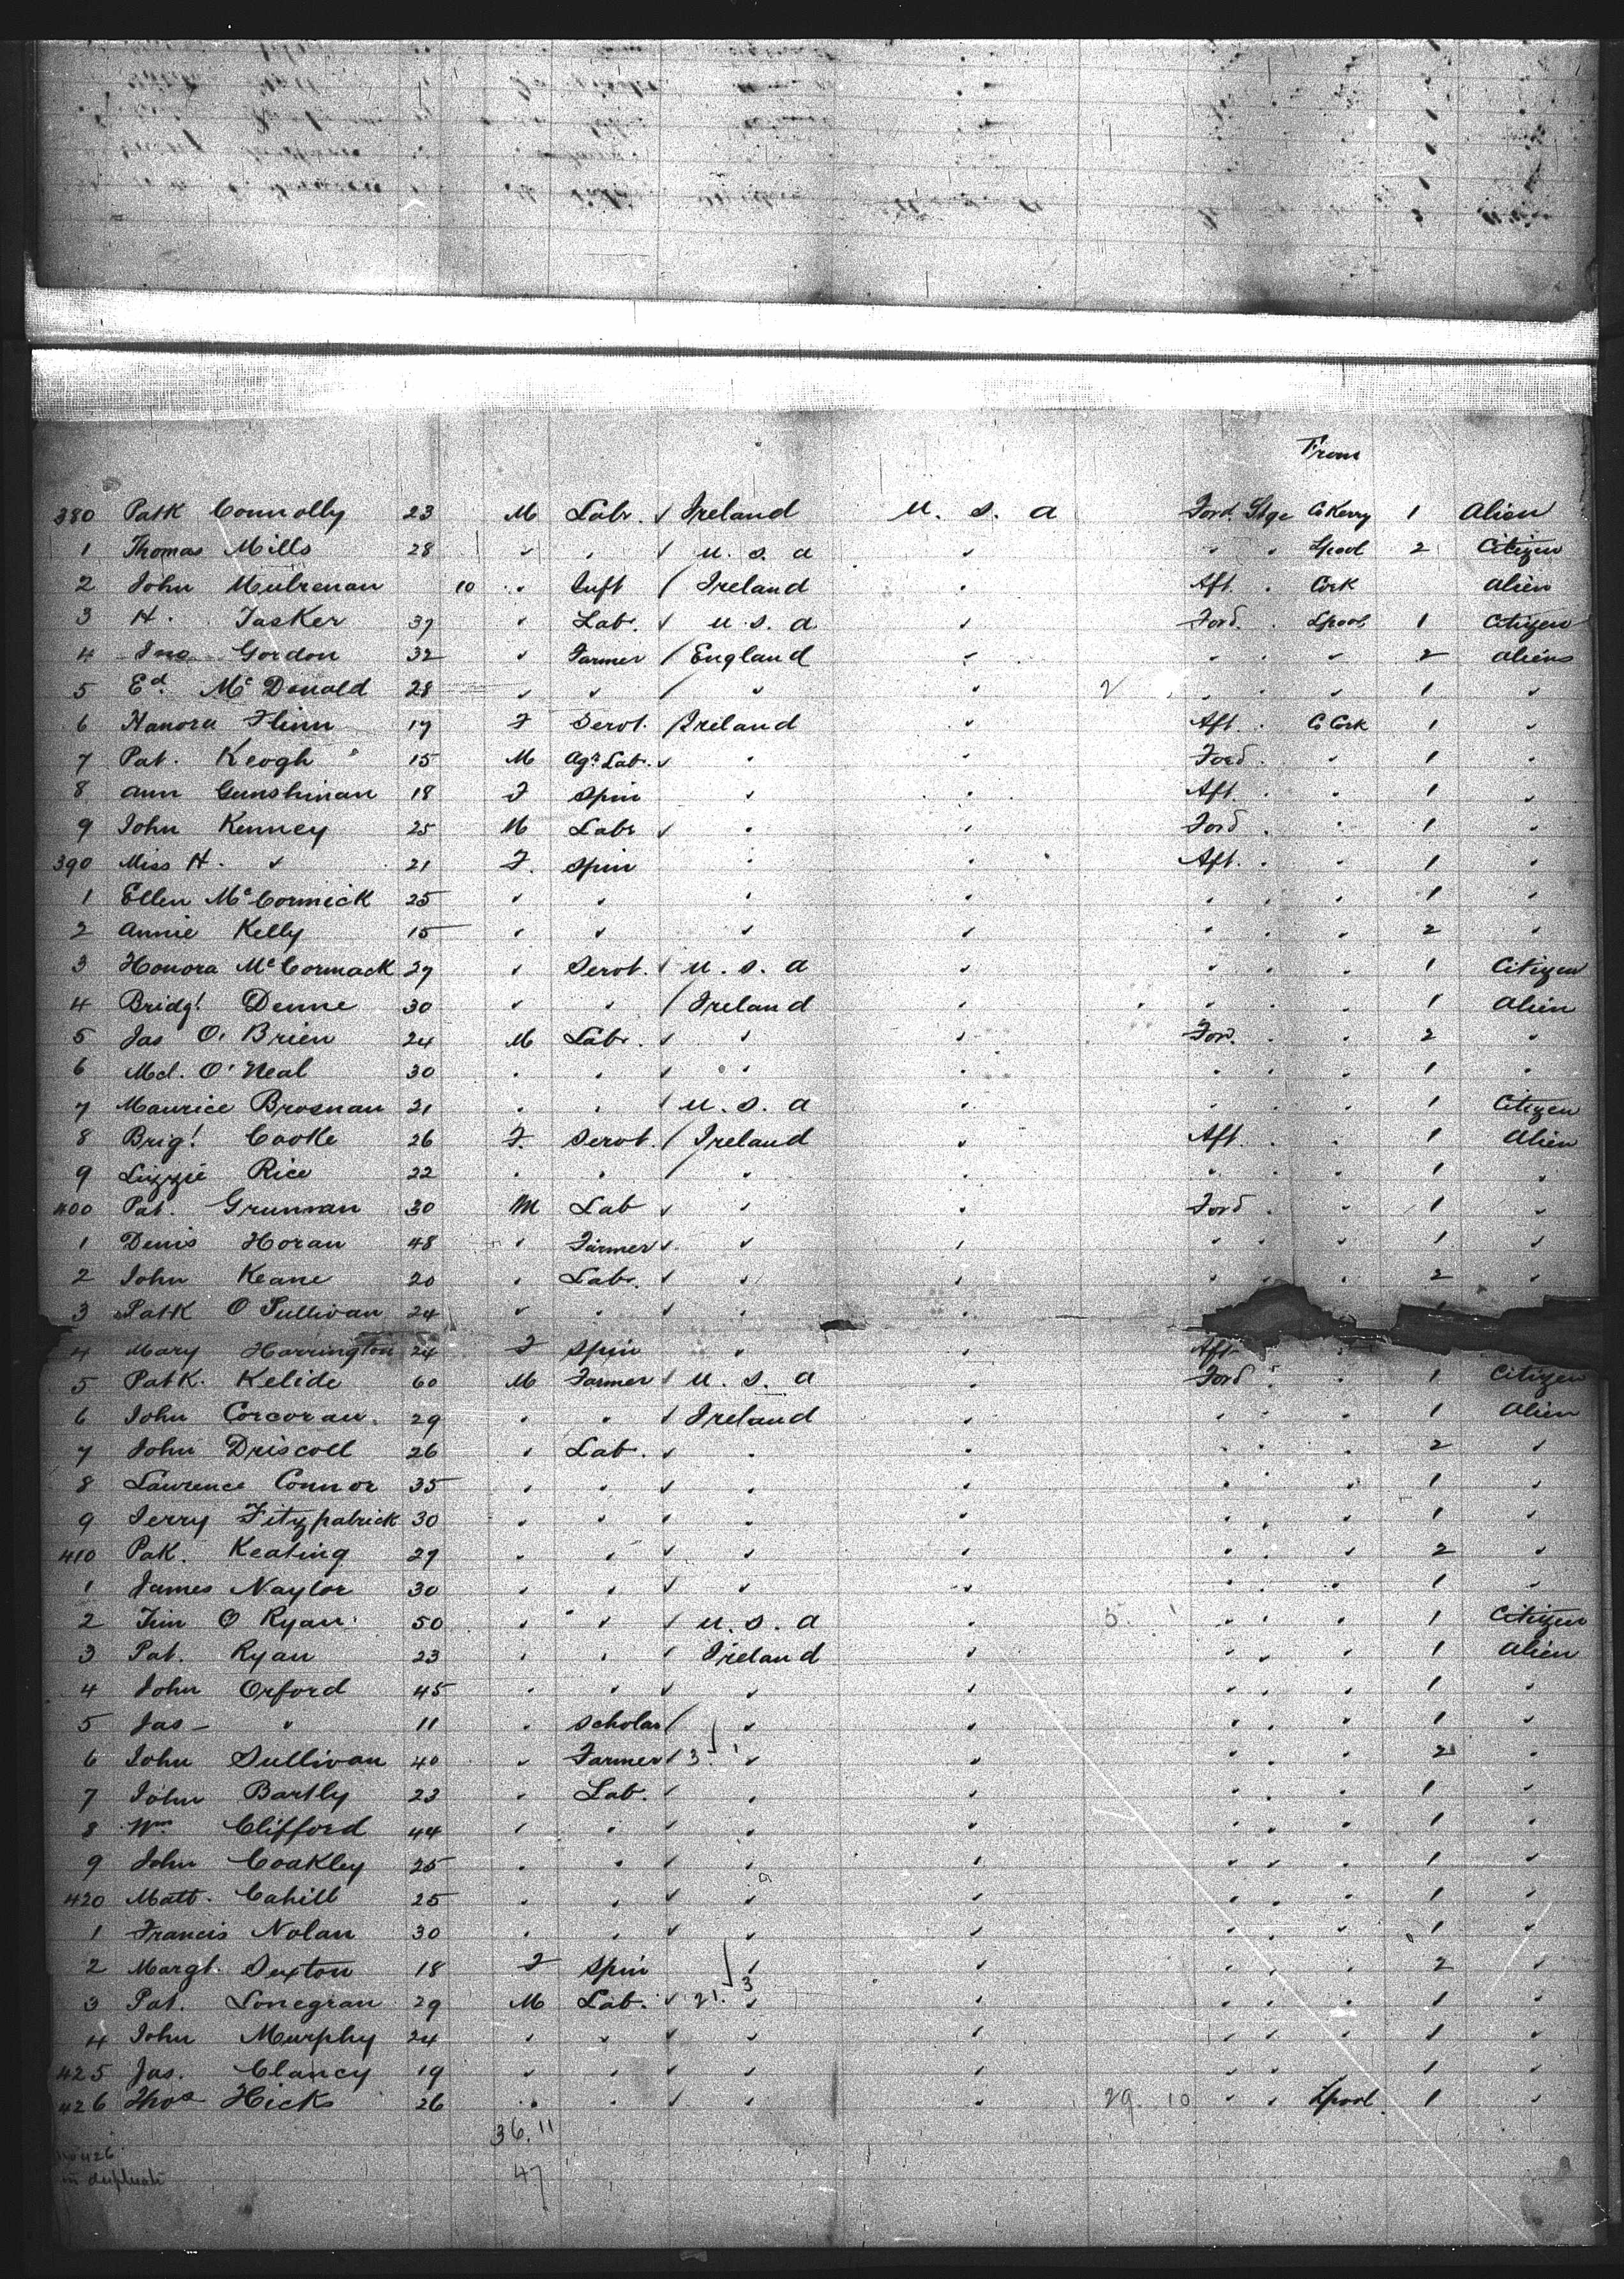 From
380 Patk Connolly 23 M Labr. ✓ Ireland U. S. A Ford. Stge Co Kerry 1 Alien
1 Thomas Mills 28 " " ✓ U. S. A " " " Lpool 2 Citizen
2 John Mulrenan 10 " Inft / Ireland " Aft. " Cork Alien
3 H. Tasker 37 " Labr. ✓ U. S. A " Ford. " Lpool 1 Citizen
4 Jno Gordon 32 " Farmer / England " " " " 2 Aliens
5 Ed. Mc Donald 28 " " / " " 2 " " " 1 "
6 Hanora Flinn 17 F Servt. / Ireland " Aft. " Co Cork 1 "
7 Pat. Keogh 15 M Agr Lab. ✓ " " Ford. " " 1 "
8 Ann Gunshinan 18 F Spin " " Aft. " " 1 "
9 John Kenney 25 M Labr ✓ " " Ford " " 1 "
390 Miss H. " 21 F. Spin " " Aft. " " 1 "
1 Ellen Mc Cormick 25 " " " " " " " 1 "
2 Annie Kelly 15 " " " " " " " 2 "
3 Honora Mc Cormack 27 " Servt. ✓ U. S. A " " " " 1 Citizen
4 Bridgt Denne 30 " " / Ireland " " " " 1 Alien
5 Jas O' Brien 24 M Labr. ✓ " " For. " " 2 "
6 Mcl. O' Neal 30 " " ✓ " " " " " 1 "
7 Maurice Brosnan 21 " " ✓ U. S. A " " " " 1 Citizen
8 Brigt Cooke 26 F. Servt. / Ireland " Aft. " " 1 Alien
9 Lizzie Rice 22 " " / " " " " " 1 "
400 Pat. Grunnan 30 M Lab ✓ " " Ford " " 1 "
1 Denis Horan 48 " Farmer ✓ " " " " " 1 "
2 John Keane 20 " Labr. ✓ " " " " " 2 "
3 Patk O Sullivan 24 " " ✓ " "
4 Mary Harrington 24 F Spin " " Aft "
5 Patk. Kelide 60 M Farmer ✓ U. S. A " Ford " " 1 Citizen
6 John Corcoran 29 " " ✓ Ireland " " " " 1 Alien
7 John Driscoll 26 " Lab. ✓ " " " " " 2 "
8 Lawrence Connor 35 " " ✓ " " " " " 1 "
9 Jerry Fitzpatrick 30 " " ✓ " " " " " 1 "
410 Pak. Keating 27 " " ✓ " " " " " 2 "
1 James Naylor 30 " " ✓ " " " " " 1 "
2 Tim O Ryan 50 " " ✓ U. S. A " 5 " " " 1 Citizen
3 Pat. Ryan 23 " " ✓ Ireland " " " " 1 Alien
4 John Orford 45 " " ✓ " " " " " 1 "
5 Jas - " 11 " Scholar / " " " " " 1 "
6 John Sullivan 40 " Farmer ✓ 3 1 " " " " " 2 "
7 John Bartly 23 " Lab. ✓ " " " " " 1 "
8 Wm Clifford 44 " " ✓ " " " " " 1 "
9 John Coakley 25 " " ✓ " " " " " 1 "
420 Matt. Cahill 25 " " ✓ " " " " " 1 "
1 Francis Nolan 30 " " ✓ " " " " " 1 "
2 Margt. Sexton 18 F Spin " " " " " 2 "
3 Pat. Lonegran 29 M Lab. ✓ 21. 3 " " " " " 1 "
4 John Murphy 24 " " ✓ " " " " " 1 "
425 Jas. Clancy 19 " " ✓ " " " " " 1 "
426 Thos Hicks 26 " " ✓ " " 29. 10 " " Lpool. 1 "
36. 11
No 426
in duplicate
47